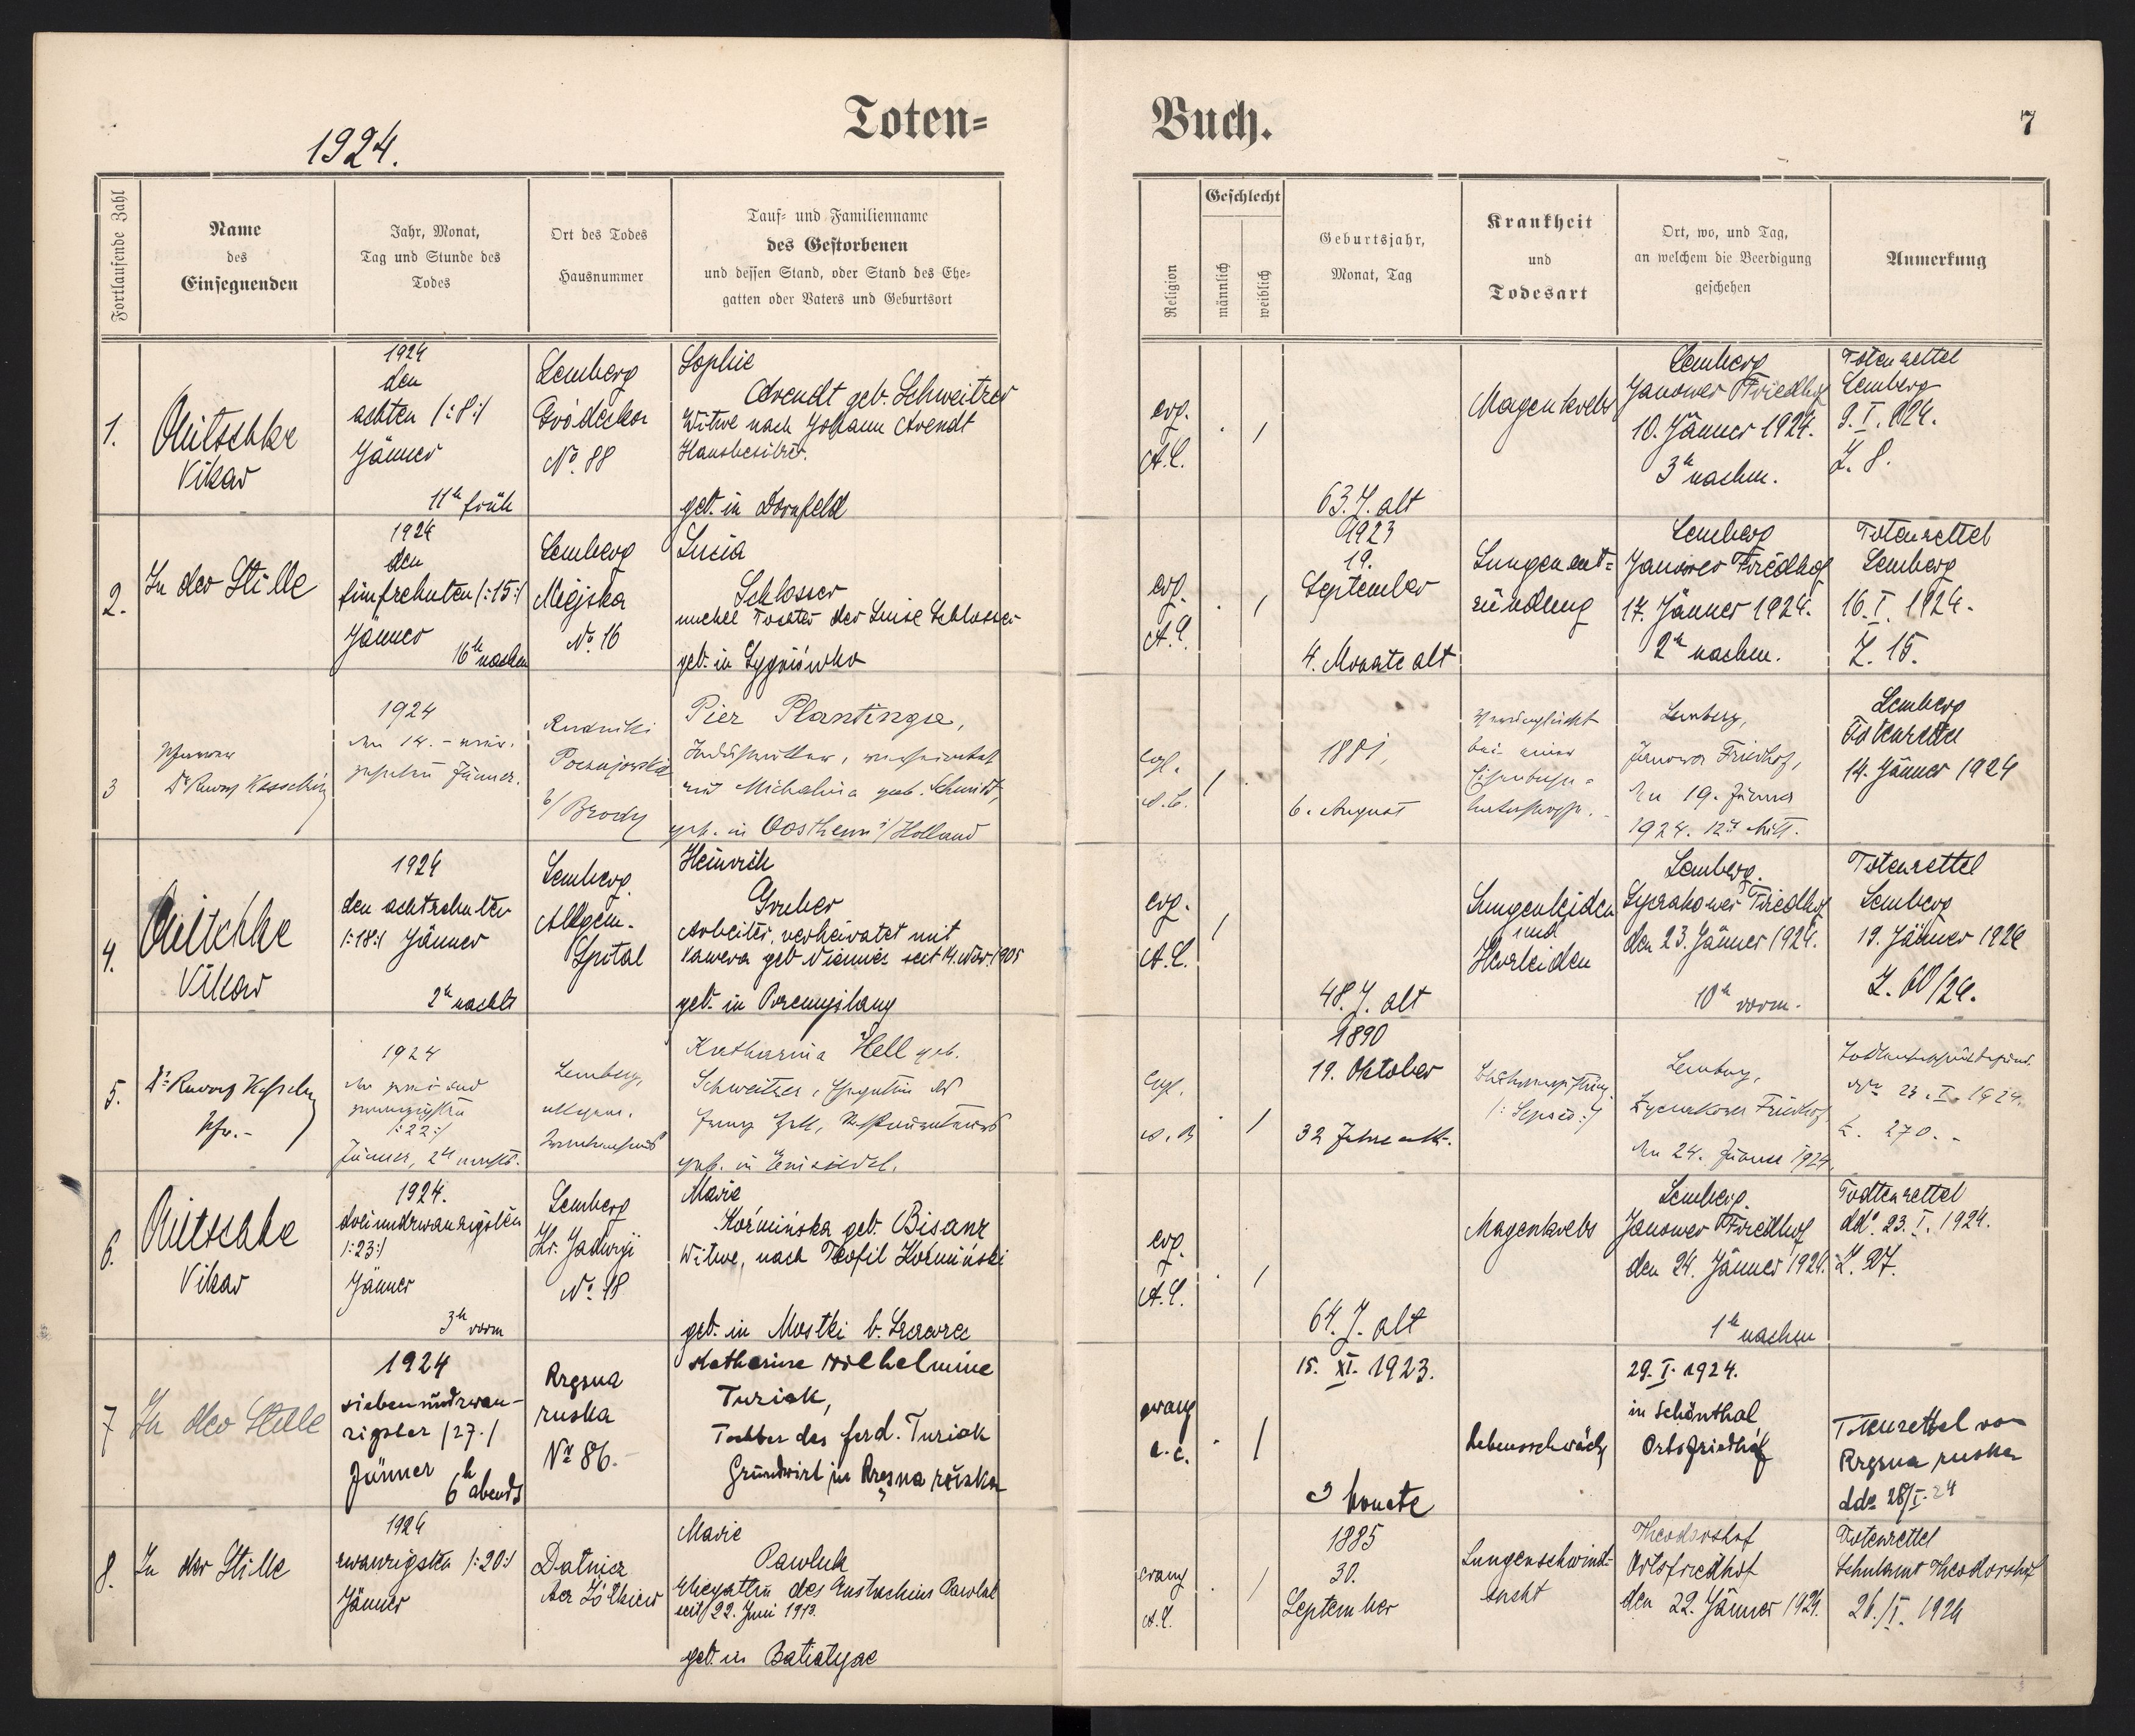 Toten= Buch.
1924.
7
Fortlaufende Zahl
Name
des
Einsegnenden
Jahr, Monat,
Tag und Stunde des
Todes
Ort des Todes
Hausnummer
Tauf= und Familienname
des Gestorbenen
und dessen Stand, oder Stand des Ehe=
gatten oder Vaters und Geburtsort
Religion
Geschlecht
männlich
weiblich
Geburtsjahr,
Monat, Tag
Krankheit
und
Todesart
Ort, wo, und Tag,
an welchem die Beerdigung
geschehen
Anmerkung
1.
Vikar
1924
den
achten /:8:/
Jänner
11h früh
Lemberg
Gródecka
No. 88
Sophie
Arendt geb. Schweitzer
Witwe nach Johann Arendt
Hausbesitzer.
geb. in Dornfeld
evg.
A.C.
/
63. J. alt
Magenkrebs
Lemberg
Janower Friedhof
10. Jänner 1924.
3h nachm.
Totenzettel
Lemberg
9. I. 924.
Z. 8.
2.
In der Stille
1924
den
fünfzehnten /:15:/
Jänner
16h nachm
Lemberg
Miejska
No. 16
Lucia
Schlosser
unehel Tochter der Luise Schlosser
geb. in
evg.
A.C.
/
1923
19.
September
4. Monate alt
Lungenent=
zündung
Lemberg
Janower Friedhof
17. Jänner 1924.
2h nachm.
Totenzettel
Lemberg
16. I. 1924.
Z. 15.
3
Pfarrer
Dr Kesselring
1924
den 14. –
Jänner.
Rudniki
b/Brody
Pier Plantinga,
verheiratet
mit Michalina geb. Schmidt,
geb. in /Holland
Evgl.
A.C.
/
1881,
6. August
Verunglückt
bei einer
Lemberg,
Janower Friedhof,
den 19. Jänner
1924. 12h Mitt.
Lemberg
Totenzettel
14. Jänner 1924
4.
Vikar
1924
den achtzehnten
/:18:/ Jänner
2h nachts
Lemberg.
Allgem.
Spital
Heinrich
Gruber
Arbeiter, verheiratet mit
geb. in Przemyslany
evg.
A.C.
/
48. J. alt
Lungenleiden
und
Herzleiden
Lemberg.
Lyczakower Friedhof
den 23. Jänner 1924.
10h vorm.
Totenzettel
Lemberg
19. Jänner 1924
Z. 60/24.
5.
Dr Kesselring
Pfr.-
1924
den zwei und
zwanzigsten
/:22:/
Jänner, 2h nachts.
Lemberg,
allgem.
Katharina Hell geb.
Schweitzer, Ehegattin des
geb. in Einsiedel.
Evgl.
A.B
/
1890
19. Oktober
32 Jahre alt.
Blutvergiftung
/: Sepsis :/
Lemberg,
Lyczakower Friedhof
den 24. Jänner 1924.
23. I. 1924.
Z. 270.-
6.
Vikar
1924.
dreiundzwanzigsten
/:23:/
Jänner
3h vorm
Lemberg
Kr. Jadwigi
No. 18
Marie
Koźmińska geb. Bisanz
Witwe, nach Teofil Koźmiński
geb. in Mostki b.
evg.
A.C.
/
64. J. alt
Magenkrebs
Lemberg.
Janower Friedhof
den 24. Jänner 1924.
1h nachm
Todtenzettel
ddo. 23. I. 1924.
7
In der Stille
1924
siebenundzwan-
zigster /27./
Jänner
6h abends
Rzęsna
ruska
No 86.-
Katharine Wilhelmine
Turiak,
Tochter des Ferd. Turiak
Grundwirt in Rzęsna ruska
evang
a. c.
/
15. XI. 1923.
3 Monate
Lebensschwäche
29. I. 1924.
in Schönthal
Ortsfriedhof
Totenzettel von
Rzęsna ruska
ddo 28/I. 24
8.
In der Stille
1924
zwanzigsten /:20:/
Jänner
Marie
Pawluk
Ehegattin des Eustachius Pawluk
seit 22. Juni 1913.
geb. in Batiatycze
evang
A.C.
/
1885
30.
September
Lungenschwind-
sucht
Theodorshof
Ortsfriedhof
den 22. Jänner 1924.
Totenzettel
Schulamt Theodorshof
26./I. 1924